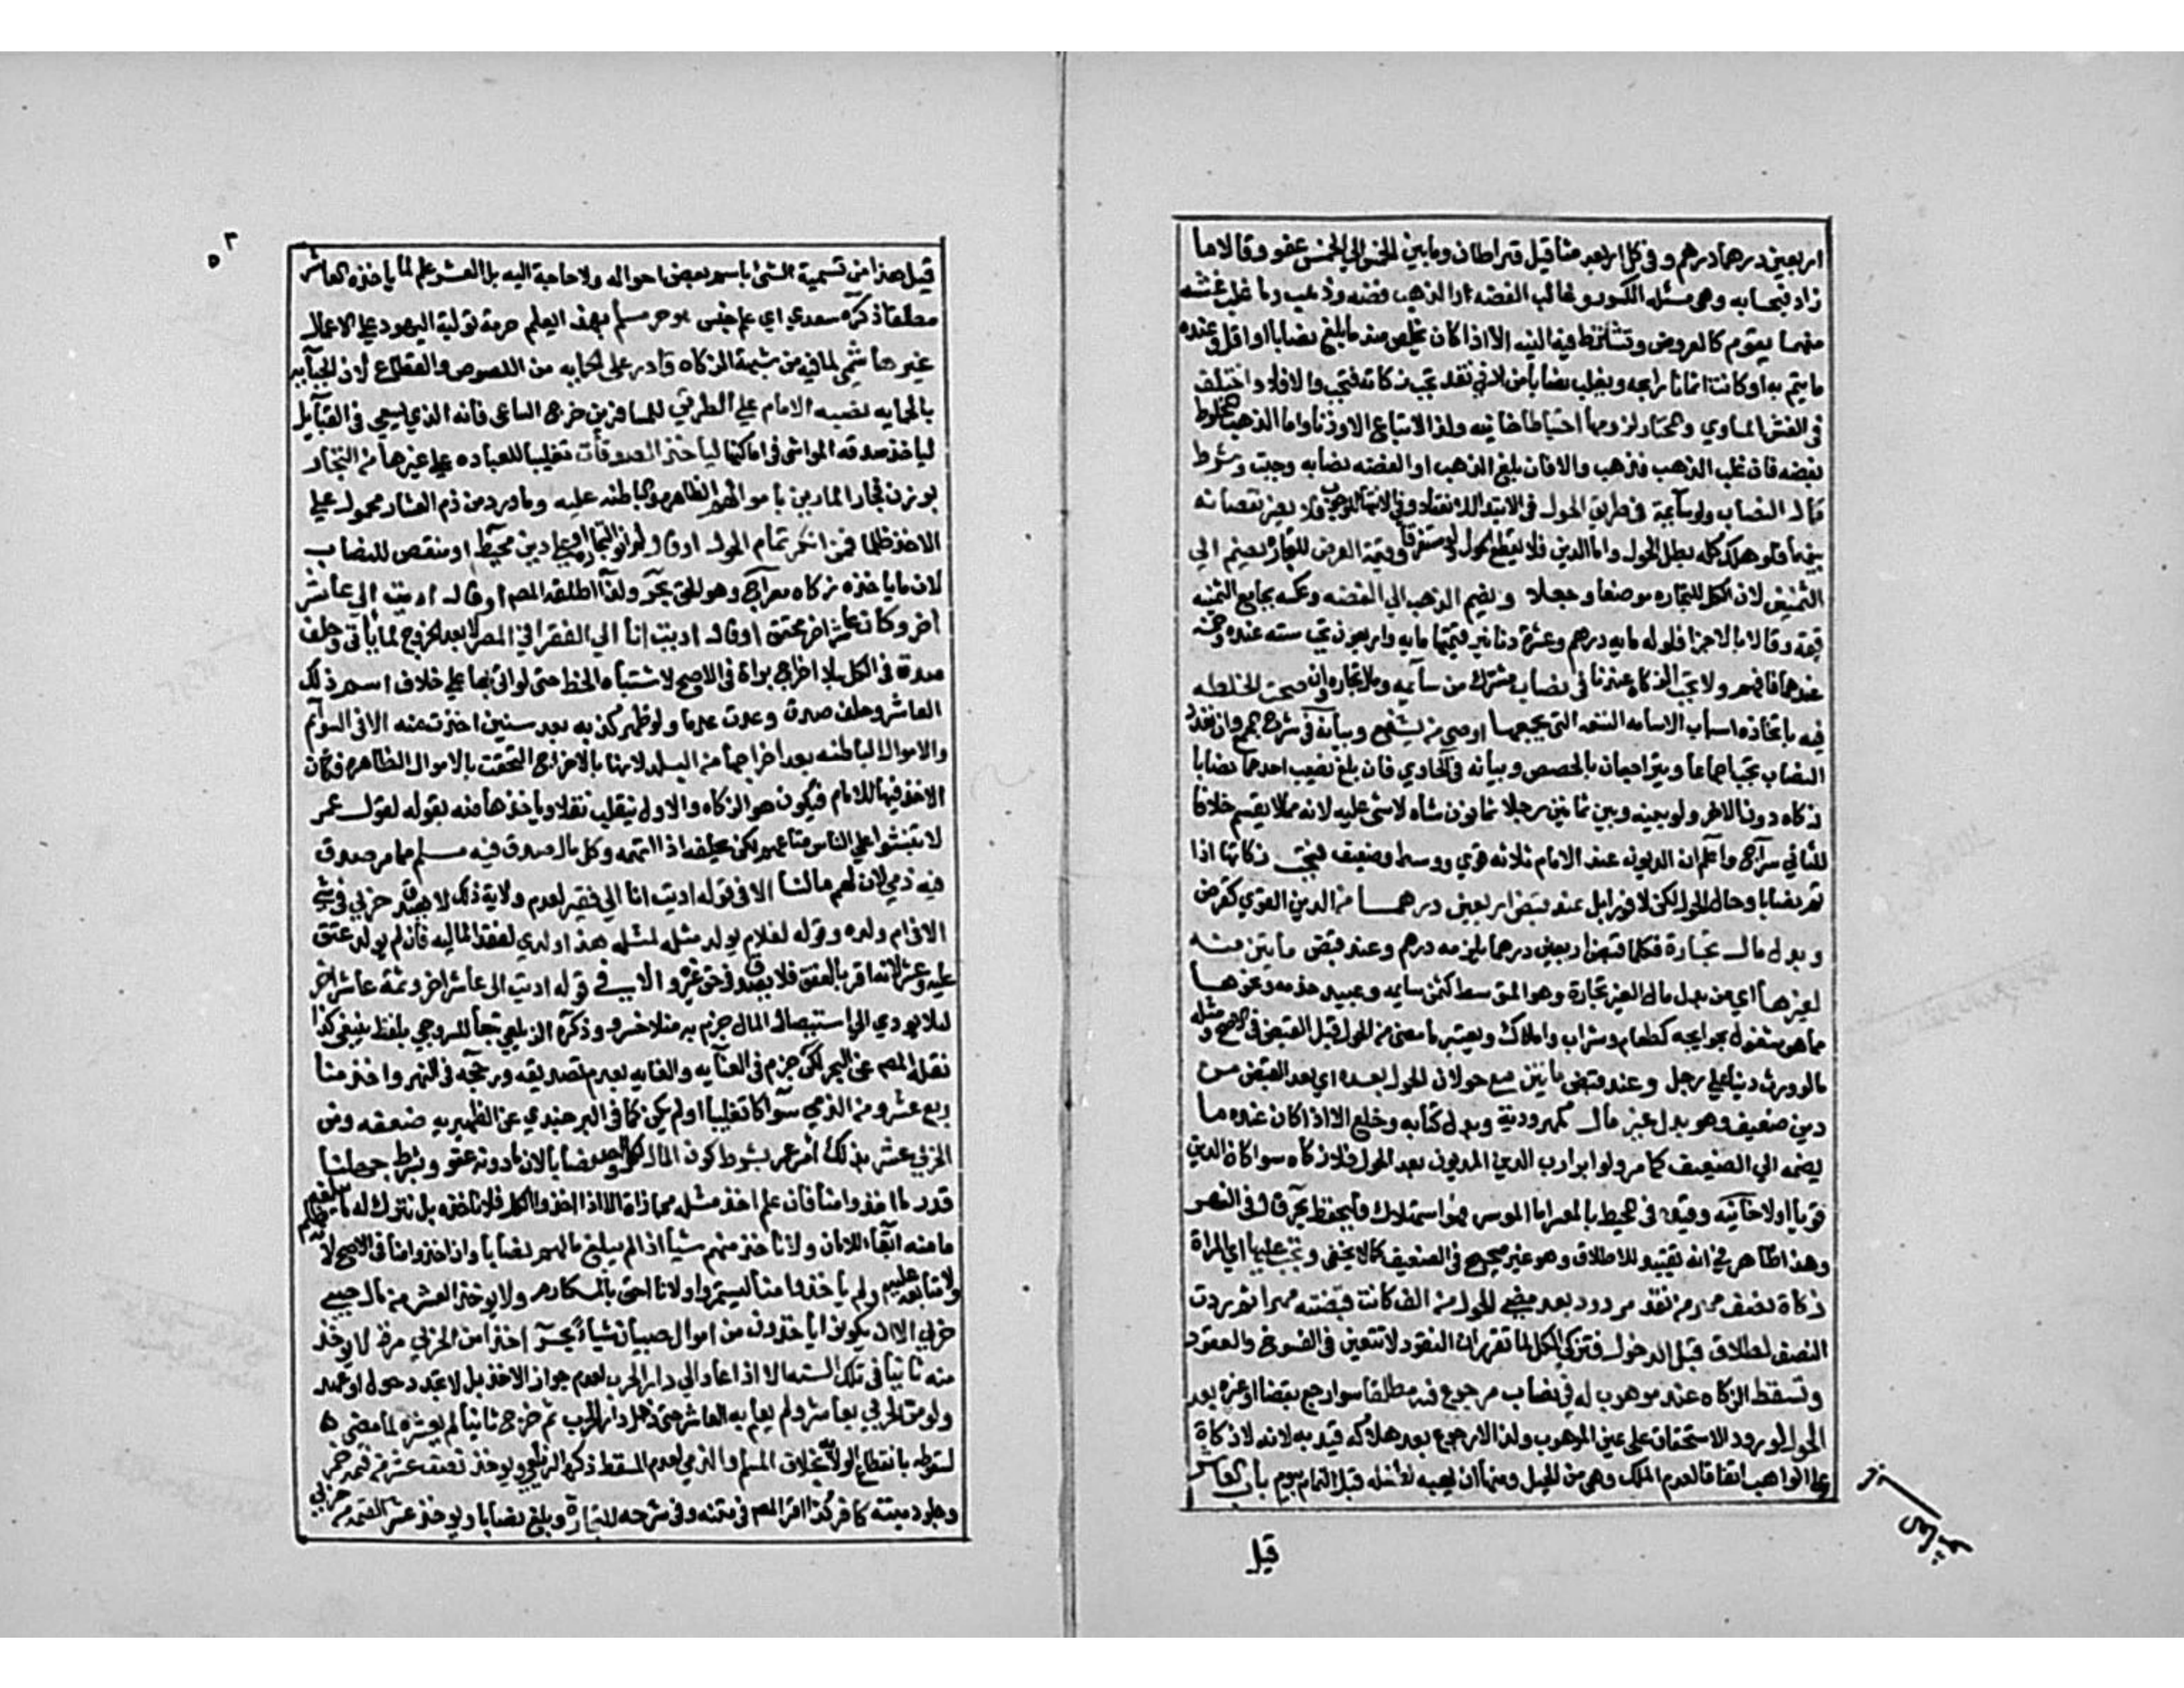 اربعين درهما درهم وفي كل اربعه مثاقيل قيراطان وما بين الخمس الي الخمس عفو وقالا ما
زاد فبحسابه وهي مسئله الكسور وغالب الفضه او الذهب فضه وذهب وما غلب غشه
منهما يقوم كالعروض وتشترط فيه النيه الا اذا كان يخلص منه ما يبلغ نصابا او اقل وعنده
ما يتم به او كانت اثمانا رابحه وبلغت نصابا من ادني نقد تجب زكاته فتجب والا فلا واختلف
في الغش المساوي والمختار لزومها احتياطا خانيه ولذا لا تباع الا وزنا واما الذهب المخلوط
بفضه فان غلب الذهب فذهب والا فان بلغ الذهب او الفضه نصابه وجبت وشرط
كمال النصاب ولو سآيمة في طرفي الحول في الابتدا للانعقاد وفي الانتها للوجوب فلا يضر نقصانه
بينهما فلو هلك كله بطل الحول واما الدين فلا يقطع الحول ولو مستغرقا وقيمة العرض للتجاره تضم الي
الثمنين لان الكل للتجاره وضعا وجعلا ويضم الذهب الي الفضه وعكسه بجامع الثمنيه
قيمة وقالا بالاجزا فلو له مايه درهم وعشرة دنانير قيمتها مايه واربعون تجب سته عنده وخمسه
عندهما فافهم ولا تجب الزكاه عندنا في نصاب مشترك من سآيمه ومال تجاره وان صحت الخلطه
فيه باتحاد اسباب الاسامه التسعه التي يجمعها اوص من يشفع وبيانه في شرح المجمع وان تعدد
النصاب تجب اجماعا ويتراجعان بالحصص وبيانه في الحاوي فان بلغ نصيب احدهما نصابا
زكاه دون الاخر ولو بينه وبين ثمانين رجلا ثمانون شاه لا شي عليه لانه مما لا يقسم خلافا
للثاني سراج واعلم ان الديون عند الامام ثلاثه قوي ووسط وضعيف فتجب زكاتها اذا
تم نصابا وحال الحول لكن لا فورا بل عند قبض اربعين درهمــا من الدين القوي كقرض
وبدل مال تجارة فكلما قبض اربعين درهما يلزمه درهم وعند قبض مايتين منه
لغيرهـا اي من بدل مال لغير تجارة وهو المتوسط كثمن سايمه وعبيد خدمه ونحوهــا
مما هو مشغول بحوايجه كطعام وشراب واملاك ويعتبر ما مضي من الحول قبل القبض في الاصح ومثله
ما لو ورث دينا علي رجل وعند قبض مايتين مع حولان الحول بعده اي بعد القبض من
دين ضعيف وهو بدل غير مال كمهر ودية وبدل كتابه وخلع الا اذا كان عنده ما
يضمه الي الضعيف كما مر ولو ابرا رب الدين المديون بعد الحول فلا زكاه سوا كان الدين
قويا اولا خآنيه وقيده في المحيط بالمعسر اما الموسر فهو استهلاك فليحفظ بحر قال في النهر
وهذا ظاهر في انه تقييد للاطلاق وهو غير صحيح في الضعيف كما لا يخفي وتجب عليها اي المراة
زكاة نصف مهر من نقد مردود بعد مضي الحول من الف كانت قبضته مهرا ثم ردت
النصف لطلاق قبل الدخول فتزكي الكل لما تقرر ان النقود لا تتعين في الفسوخ والعقود
وتسقط الزكاه عند موهوب له في نصاب مرجوع فيه مطلقا سوا رجع بقضا او غيره بعد
الحول لورود الاستحقاق علي عين الموهوب ولذا لا رجوع بعد هلاكه قيد به لانه لا زكاة
علي الواهب اتفاقا لعدم الملك وهي من الحيل ومنها ان يهبه لطفله قبل التمام بيوم باب العاشر
قيل
٥٢
قيل هذا من تسمية الشئ باسم بعض احواله ولا حاجة اليه بل العشر علم لما ياخذه العاشر
مطلقا ذكره سعدي اي علم جنس هو حر مسلم بهذا يعلم حرمة تولية اليهود علي الاعمال
غير هاشمي لما فيه من شبهة الزكاه قادر علي الحمايه من اللصوص والقطاع لان الجبآيه
بالحمايه نصبه الامام علي الطريق للمسافرين خرج الساعي فانه الذي يسعي في القبآيل
لياخذ صدقه المواشي في اماكنها لياخذ الصدقات تغليبا للعباده علي غيرها من التجار
بوزن فجار المارين باموالهم الظاهره والباطنه عليه وما ورد من ذم العشار محمول علي
الاخذ ظلما فمن انكر تمام الحول او قال لم انو التجارة او علي دين محيط او منقص للنصاب
لان ما ياخذه زكاه معراج وهو الحق بحر ولذا اطلقه المص او قال اديت الي عاشر
اخر وكان عاشر اخر محقق او قال اديت انا الي الفقرا في المصر لا بعد الخروج لما ياتي وحلف
صدق في الكل بلا اخراج براة في الاصح لاشتباه الخط حتي لو اتي بها علي خلاف اسم ذلك
العاشر وحلف صدق وعدت عدما ولو ظهر كذبه بعد سنين اخذت منه الا في السوآيم
والاموال الباطنه بعد اخراجها من البلد لانها بالاخراج التحقت بالاموال الظاهره فكان
الاخذ فيها للامام فيكون هو الزكاه والاول ينقلب نفلا وياخذها منه بقوله لقول عمر
لا تنبشوا علي الناس متاعهم لكن يحلفه اذا اتهمه وكل ما صدق فيه مسلم مما مر صدق
فيه ذمي لان لهم مالنا الا في قوله اديت انا الي فقير لعدم ولاية ذلك لا يصدق حربي في شي
الا في ام ولده وقوله لغلام يولد مثله لمثله هذا ولدي لفقد الماليه فان لم يولد عتق
عليه وعشر لانه اقر بالعتق فلا يصدق في حق غيره والا في قوله اديت الي عاشر اخر وثمة عاشر اخر
ليلا يودي الي استيصال المال جزم به منلا خسرو وذكره الزيلعي تبعا للسروجي بلفظ ينبغي كذا
نقله المص عن البحر لكن جزم في العنآيه والغايه بعدم تصديقه ورجحه في النهر واخذ منا
ربع عشر ومن الذمي سوآ كان تغلبيا او لم يكن كما في البرجندي عن الظهيريه ضعفه ومن
الحربي عشر بذلك امر عمر بشرط كون المال لكل واحد نصابا لان ما دونه عفو وبشرط جهلنا
قدر ما اخذوا منا فان علم اخذ مثله مجازاة الا اذا اخذوا الكل فلا ناخذه بل نترك له ما يبلغه
مامنه ابقآ للامان ولا ناخذ منهم شيأ اذا لم يبلغ مالهم نصابا وان اخذوا منا في الاصح لانه ظلم
ولا متابعه عليه ولم ياخذوا منا ليستمروا ولانا احق بالمكارم ولا يوخذ العشر من مال صبي
حربي الا ان يكونوا ياخذون من اموال صبياننا شيأ بحر اخذ من الحربي مرة لا يوخذ
منه ثانيا في تلك السنه الا اذا عاد الي دار الحرب لعدم جواز الاخذ بل لا تجدد حول او عهد
ولو مر الحربي بعاشر ولم يعلم به العاشر حتي دخل دار الحرب ثم خرج ثانيا لم يعشره لما مضي
لسقوطه بانقطاع الولاية بخلاف المسلم والذمي لعدم المسقط ذكره الزيلعي ويوخذ نصف عشر من قيمة خمر
وجلود ميتة كافر كذا اقر المص في متنه وفي شرحه للتجارة وبلغ نصابا ويوخذ عشر القيمة من حربي